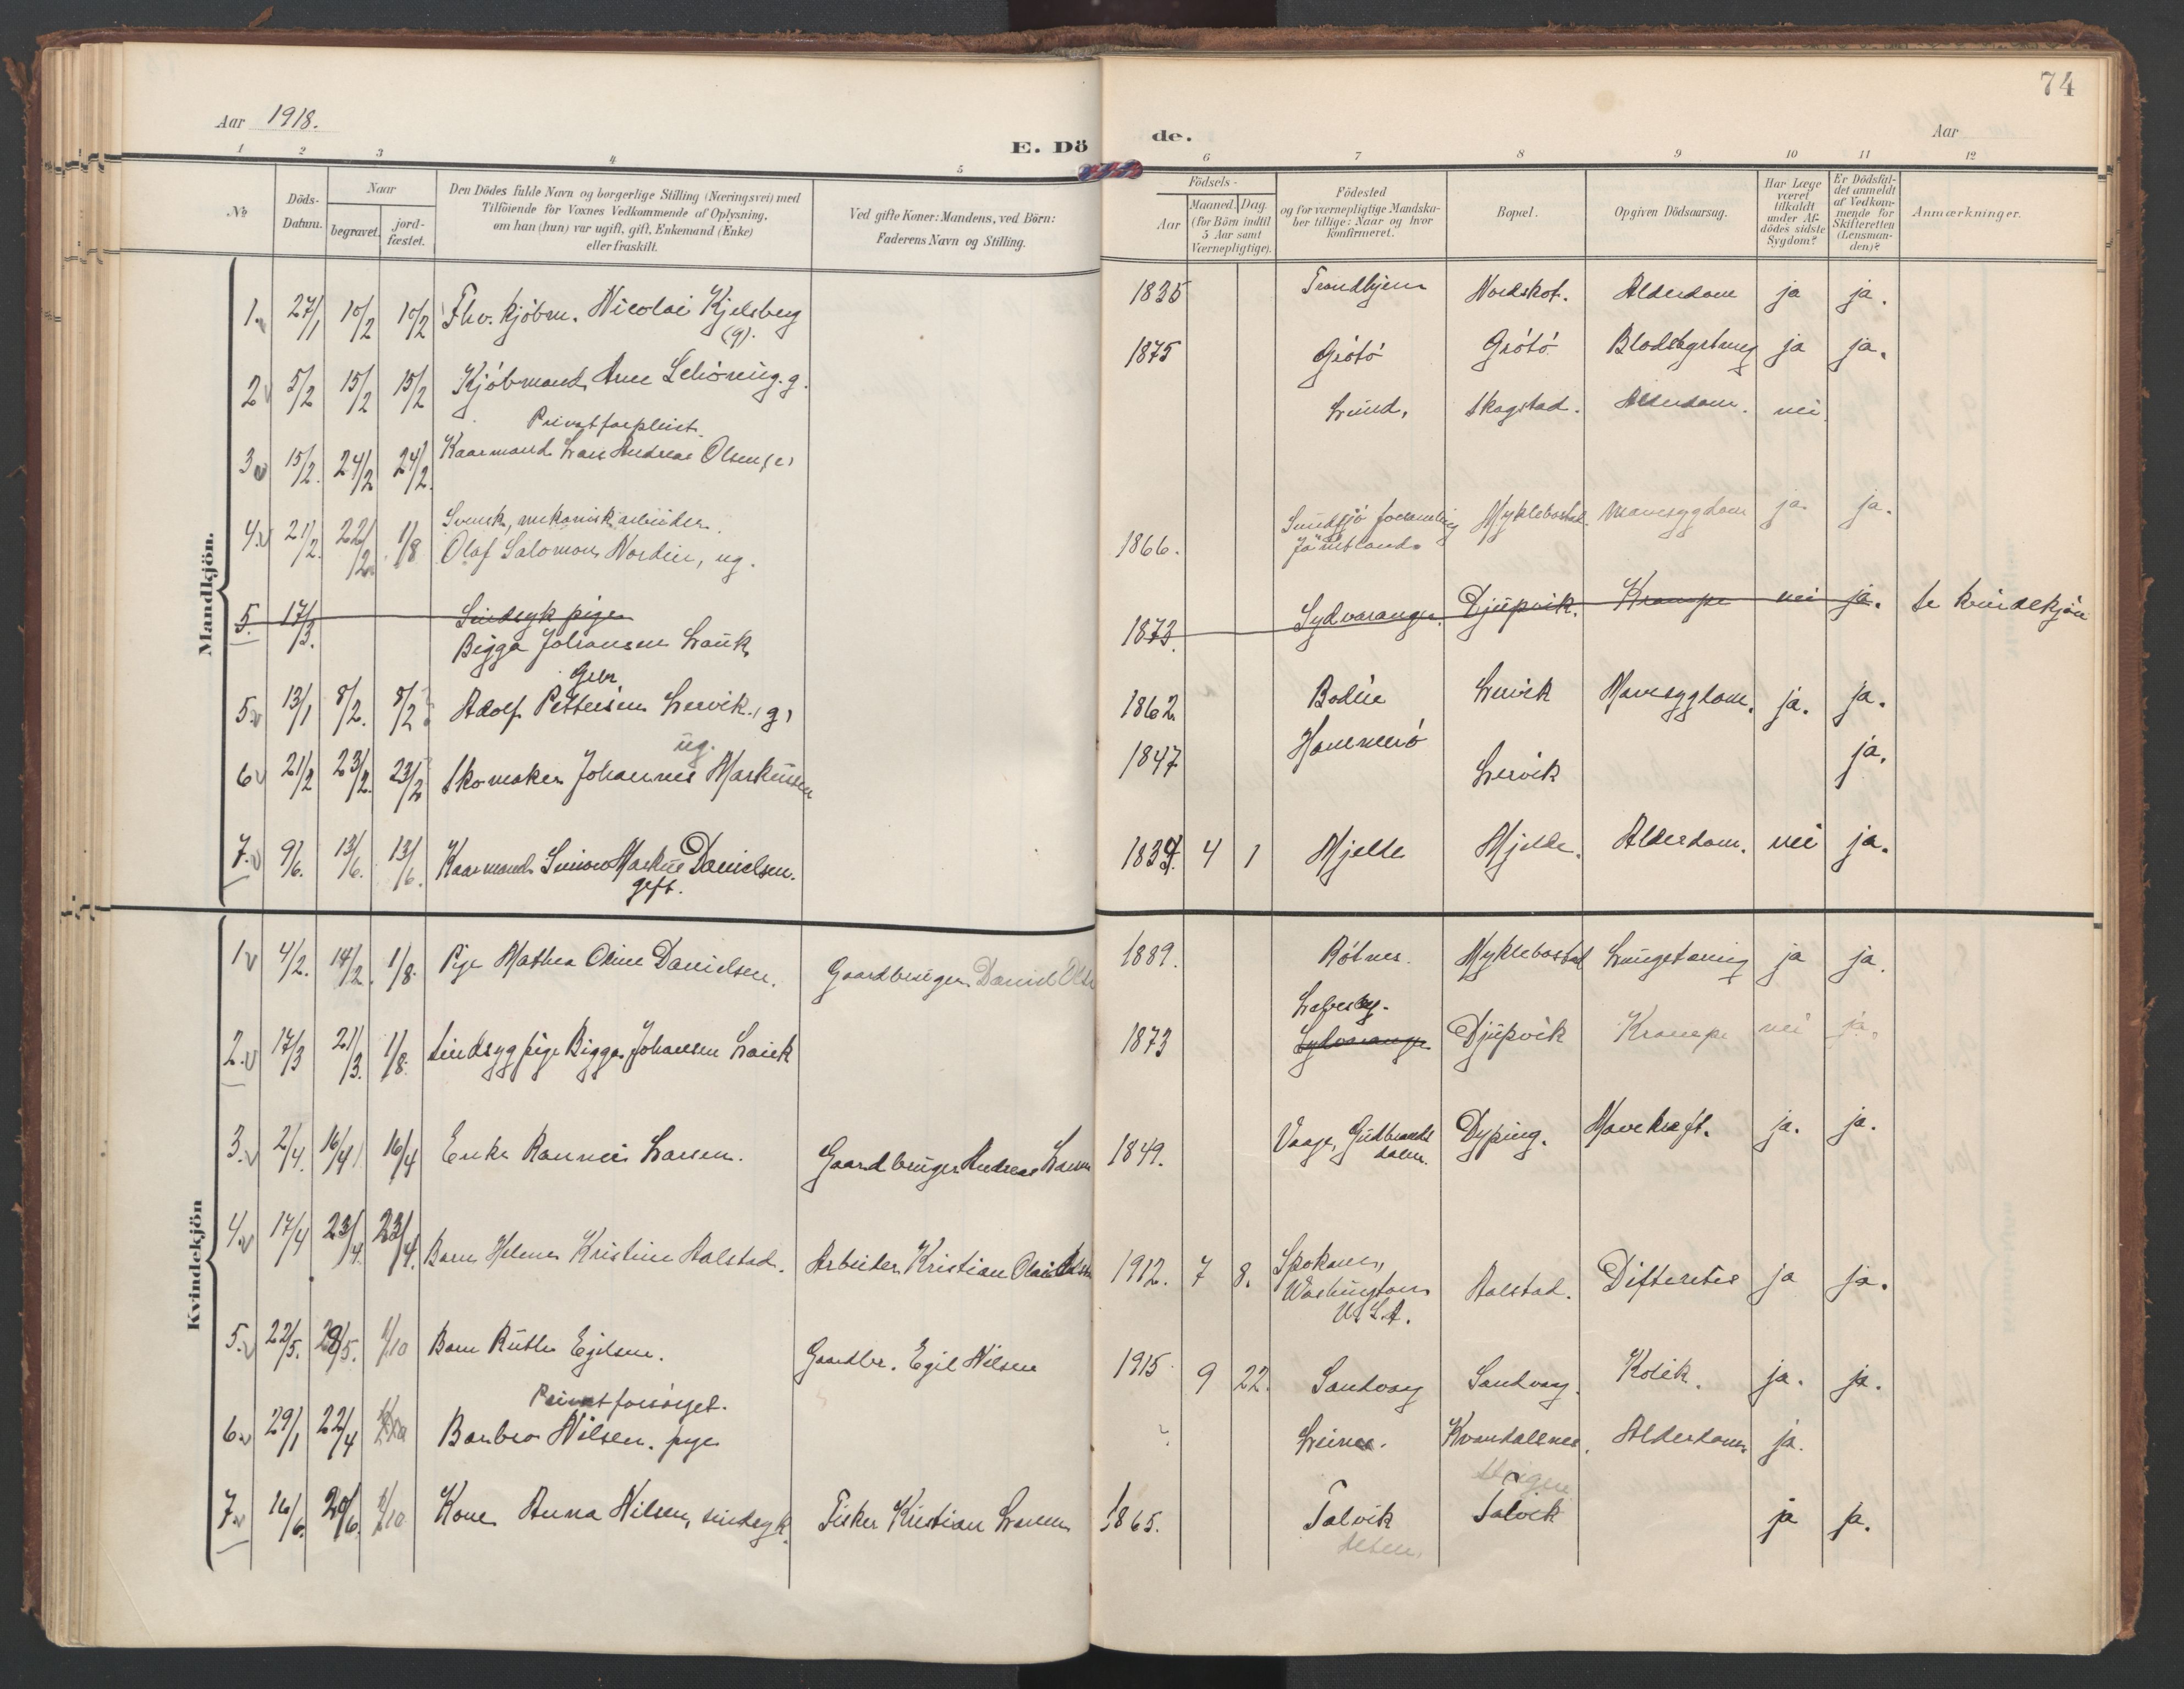 Aar 1918.
E. Dö
1 2 3 4 5
№
Döds-
Datum.
Naar
begravet.
jord-
fæstet.
Den Dödes fulde Navn og borgerlige Stilling (Næringsvei) med
Tilföiende for Voxnes Vedkommende af Oplysning,
om han (hun) var ugift, gift, Enkemand (Enke)
eller fraskilt.
Ved gifte Koner: Mandens, ved Börn:
Faderens Navn og Stilling.
Mandkjön.
1. 27/1 10/2 10/2 Fhv. kjöbm. Nicolai Kjelsberg
(g).
2 5/2 15/2 15/2 Kjöbmand Arne Schöning. g.
Privatforpleiet.
3 15/2. 24/2 24/2. Kaarmand Lars Andreas Olsen (e)
Svensk, mekanisk arbeider.
4. 21/2. 22/2 1/8 Olaf Salomon Nordin, ug.
5. 17/3. Sindsyk pige
Bigga Johansen Lauk
Gbr.
5 13/1 8/2. 8/2 Adolf Pettersen Lervik. (g)
ug.
6 21/2 23/2. 23/2 Skomaker Johannes Markussen
7. 9/6. 13/6. 13/6. Kaarmand Simon Markus Danielsen.
gift.
Kvindekjön
1 4/2. 14/2. 1/8. Pige Mathea Oline Danielsen. Gaardbruger Daniel Ols
2. 17/3 21/3. 1/8. Sindsyg pige Bigga Johansen Lauk
3. 2/4. 16/4 16/4 Enke Rannei Larsen. Gaardbruger Andreas Larsen
4. 17/4 23/4. 23/4. Barn Helene Kristine Aalstad. Arbeider Kristian Olai Aalst
5. 22/5. 28/5. 1/10 Barn Ruth Egilsen. Gaardbr. Egil Nilsen
Privat forsörget.
6 29/1 22/4 Barbro Nilsen. pige
7 16/6. 20/6. 1/10 Kone Anna Nilsen, sindsyk. Fisker Kristian Larsen
74
de.
Aar
6 7 8 9 10 11 12
Födsels-
Aar
Maaned. Dag.
(for Börn indtil
5 Aar samt
Værnepligtige).
Födested
og for værnepligtige Mandska-
ber tillige: Naar og hvor
konfirmeret.
Bopæl.
Opgiven Dödsaarsag.
Har Læge
været
tilkaldt
under Af-
dödes sidste
Sygdom?
Er Dödsfal-
det anmeldt
af Vedkom-
mende for
Skifteretten
(Lensman-
den)?
Anmærkninger.
1835 Trondhjem Nordskot. Alderdom ja ja.
1875 Grötö Grötö Blodstyrtning ja ja.
Lund, Skagstad. Alderdom. nei
1866. Sundsjö forsamling Myklebostad. Mavesygdom ja. ja.
Jämtland
1873. Sydvaranger. Djupvik. Krampe nei ja. Se kvindekjön
1862. Bodin Lervik Mavesygdom. ja. ja.
1847 Hammerö Lervik ja.
1834. 4 1 Mjelde Mjelde. Alderdom. nei ja.
1889. Rötnes. Myklebostad Lungetæring ja ja.
Lebesby.
1873 Sydvaranger Djupvik Krampe nei ja.
1849. Vaage, Gudbrands Dyping. Mavekræft. ja. ja.
dalen.
1912. 7 8. Spokane, Aalstad. Difteritis ja ja.
Washington
U.S.A.
1915 9 22. Sandvaag Sandvaag. Kolik. ja. ja.
? Leines. Kvandalsnes. Alderdom ja.
Steigen
1865. Talvik Talvik ja ja.
Alten.